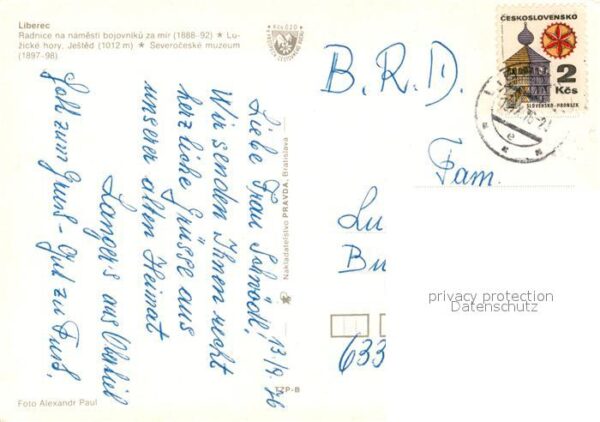 Liberec
Radnice na náměstí bojovníků za mír (1888-92) ★ Lu-
žické hory, Ještěd (1012 m) ★ Severočeské muzeum
(1897-98)
Liebe Frau Schwödl!
13/9.76
Wir senden Ihnen recht
herzliche Grüsse aus
unserer alten Heimat
Langer's aus
Gott zum Gruß - Gut zu Fuß,
Nakladatelství PRAVDA, Bratislava
TZP-B
Foto Alexandr Paul
ČESKOSLOVENSKO
2
Kčs
SLOVENSKO-HRONSEK
B.R.D.
Fam.
Lu
Bu
633
privacy protection
Datenschutz